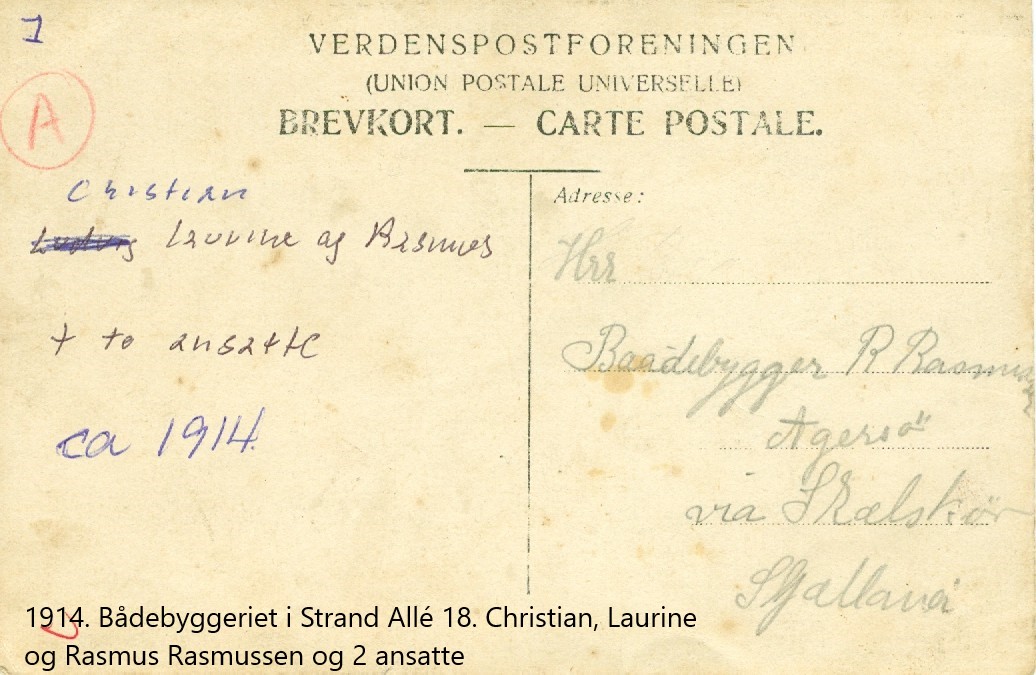 1
A
VERDENSPOSTFORENINGEN
(UNION POSTALE UNIVERSELLE)
BREVKORT. — CARTE POSTALE.
Christian
Ludvig Laurine og Rasmus
+ to ansatte
ca 1914.
Adresse:
Hrr
Baadebygger R Rasmus
Agersö
via Skælskør
Sjælland
1914. Bådebyggeriet i Strand Allé 18. Christian, Laurine
og Rasmus Rasmussen og 2 ansatte